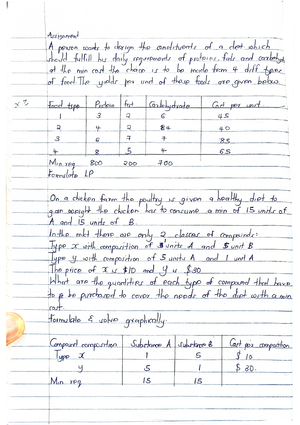 Assignment
A person wants to design the constituents of a diet which
should fulfill his daily requirements of proteins, fats and carbohyd
at the min cost the choice is to be made from 4 diff types
of food. The yields per unit of these foods are given below
Food type Protein Fat Carbohydrate Cost per unit
1 3 2 6 45
2 4 2 84 40
3 6 7 7 85
4 8 5 4 65
Min req 800 200 700
Formulate LP
On a chicken farm the poultry is given a healthy diet to
gain weight the chicken has to consume a min of 15 units of
A and 15 units of B.
In the mkt there are only 2 classes of compounds:
Type x with composition of units A and 5 unit B
Type y with composition of 5 units A and 1 unit A
The price of x is $10 and y is $30
What are the quantities of each type of compound that have
to be purchased to cover the needs of the diet with a min
cost
Formulate & solve graphically.
Compound composition Substance A substance B Cost per composition
Type x 1 5 $ 10
y 5 1 $ 30.
Min. req 15 15